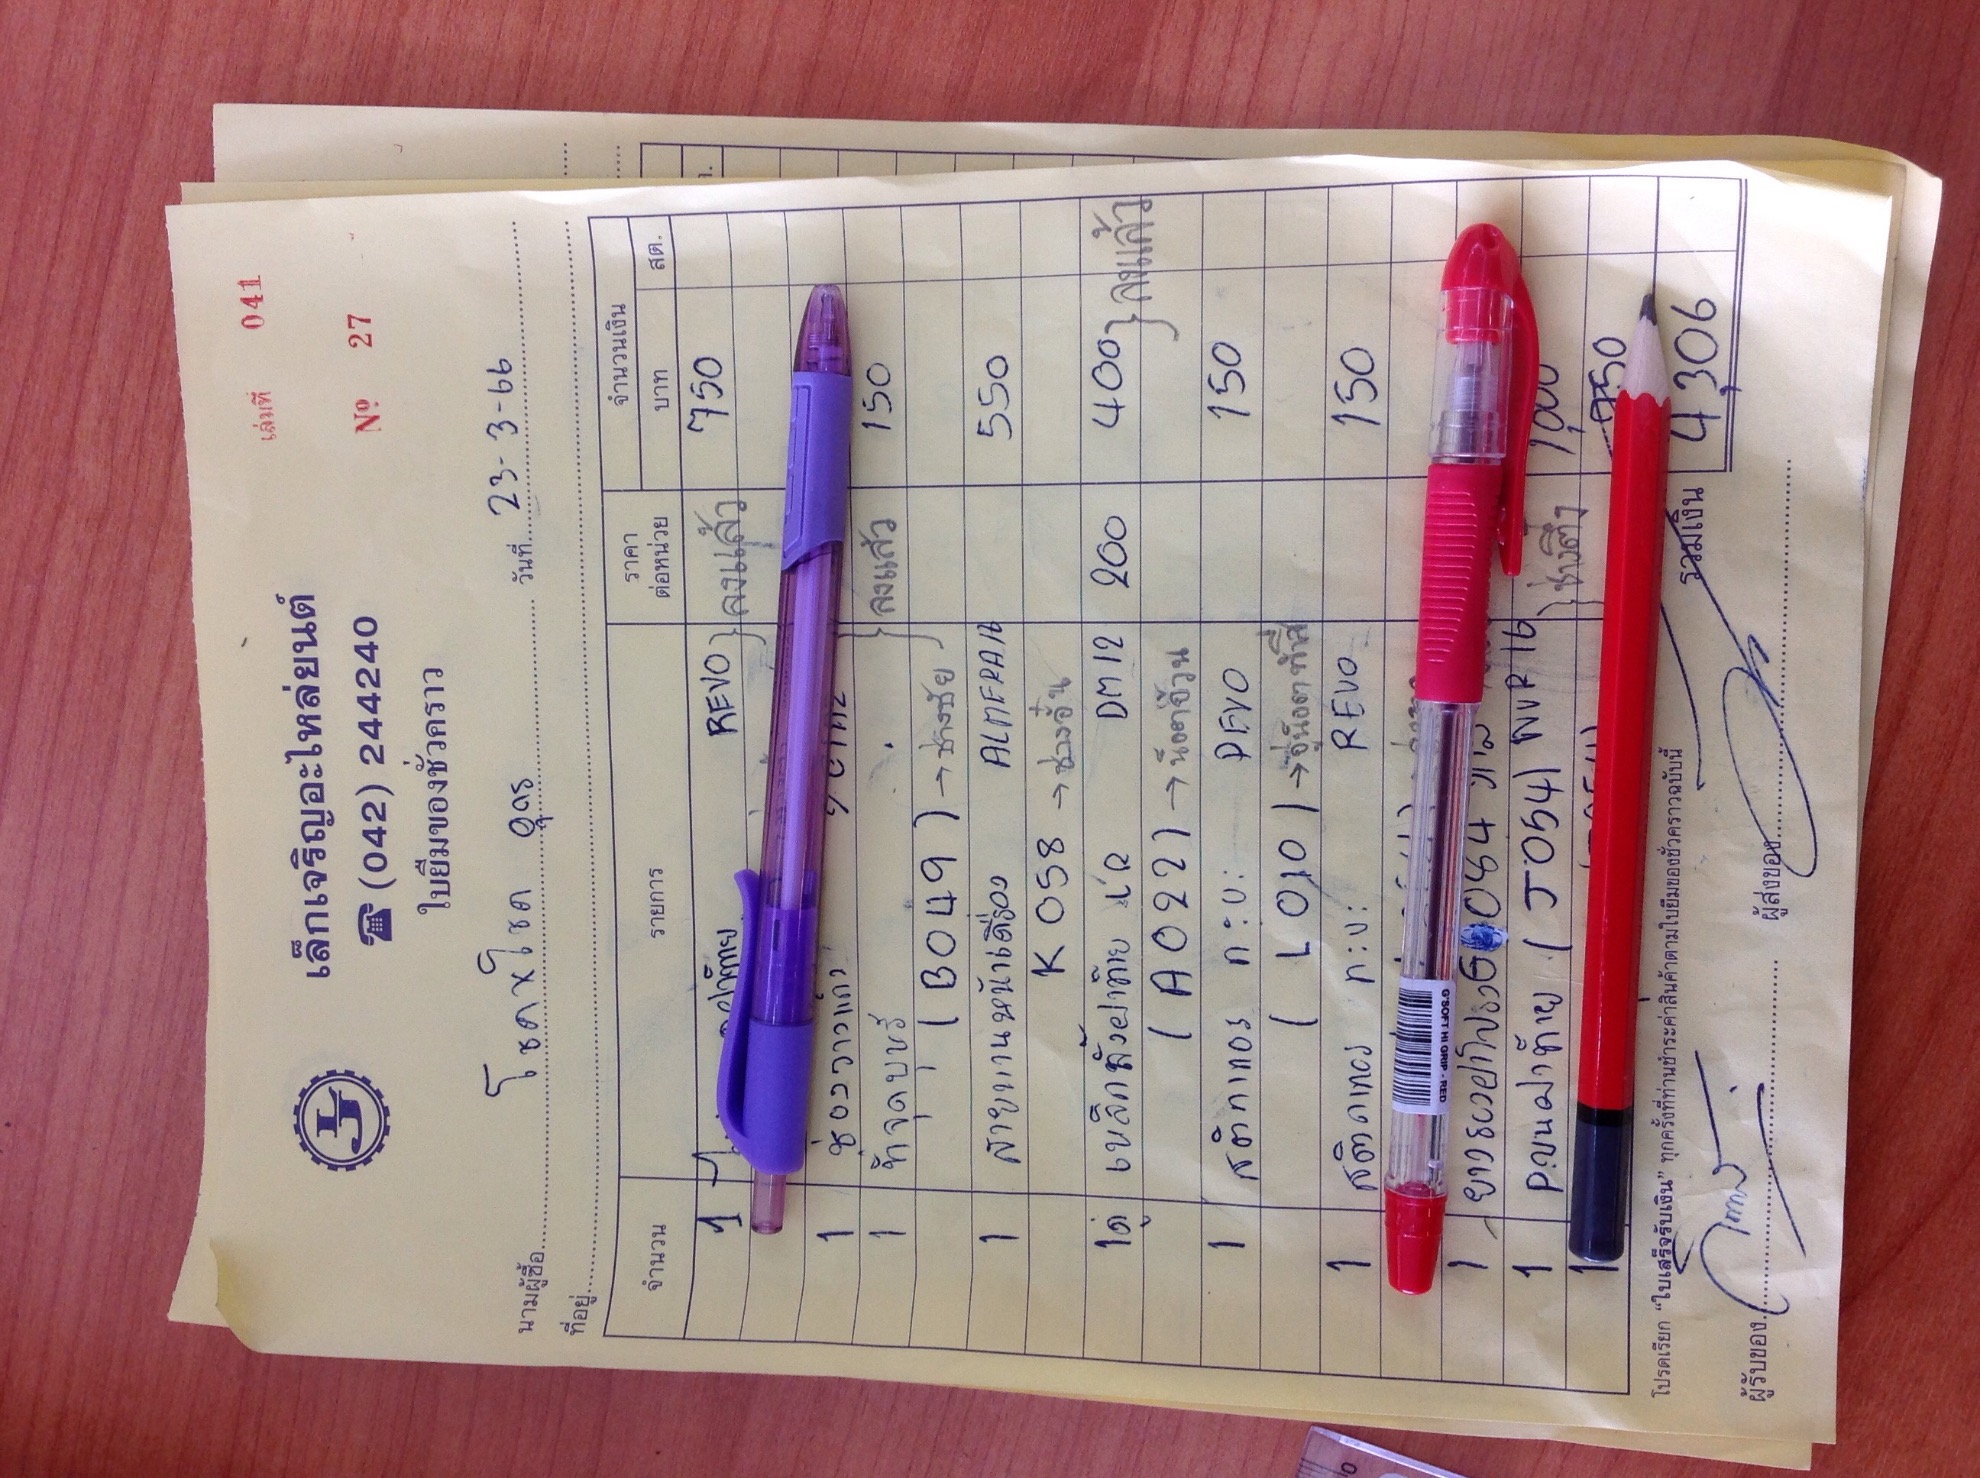 เล่มที่ 041
เล็กเจริญอะไหล่ยนต์
☎ (042) 244240
Nº 27
ใบยืมของชั่วคราว
นามผู้ซื้อ โชคชัยโชค อุดร วันที่ 23-3-66
ที่อยู่
จำนวน รายการ ราคาต่อหน่วย จำนวนเงิน
บาท สต.
1 ฝาท้าย REVO 750
} ลงแล้ว
1
1 ที่จุดบุหรี่ 150
} ลงแล้ว
( B049 ) → ช่างชัย
1 สายพานหน้าเครื่อง ALMERA 550
K 058 → ช่างอั๋น
1คู่ เหล็กค้ำฝาท้าย DM 12 200 400
} ลงแล้ว
( A022 ) →
1 สติกเกอร์ ก:บ: REVO 150
( L 010 ) →
1 สติกเกอร์ ก:บ: REVO 150
1 084
1 P.ขนฝาท้าย ( J054 ) 1,000
1 950
โปรดเรียก "ใบเสร็จรับเงิน" ทุกครั้งที่ท่านชำระค่าสินค้าตามใบยืมของชั่วคราวฉบับนี้
รวมเงิน 4,306
ผู้รับของ ผู้ส่งของ
G'SOFT HI GRIP - RED